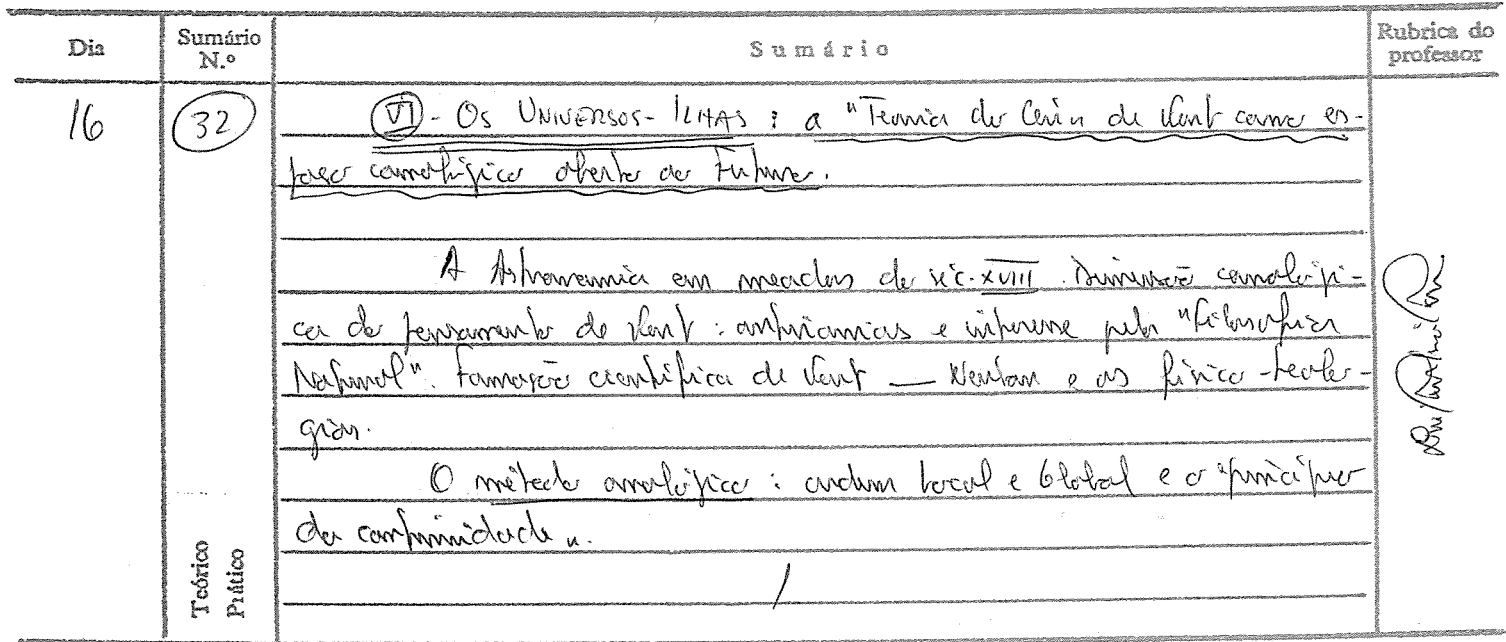 Dia Sumário N.º Sumário Rubrica do professor
16 32 VI - Os UNIVERSOS-ILHAS : a "Teoria do Céu" de Kant como es-
paço cosmológico aberto ao Futuro.
A Astronomia em meados do séc. XVIII. Dimensão cosmológi-
ca do pensamento de Kant : antinomias e interesse pela "Filosofia
Natural". Formação científica de Kant — Newton e as físico-teolo-
gias.
O método analógico : ordem local e Global e o "princípio
da continuidade".
Teórico
Prático